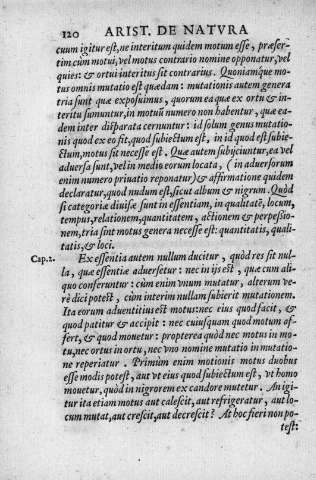 120 ARIST. DE NATVRA
cuum igitur est, ne interitum quidem motum esse, præser-
tim cùm motui, vel motus contrario nomine opponatur, vel
quies: & ortui interitus sit contrarius. Quoniamque mo-
tus omnis mutatio est quædam: mutationis autem genera
tria sunt quæ exposuimus, quorum ea quæ ex ortu & in-
teritu sumuntur, in motuū numero non habentur, quæ ea-
dem inter disparata cernuntur: id solum genus mutatio-
nis quod ex eo fit, quod subiectum est, in id quod est subie-
ctum, motus sit necesse est. Quæ autem subijciuntur, ea vel
aduersa sunt, vel in medio eorum locata, (in aduersorum
enim numero priuatio reponatur) & affirmatione quidem
declaratur, quod nudum est, sicut album & nigrum. Quòd
si categoriæ diuisæ sunt in essentiam, in qualitatē, locum,
tempus, relationem, quantitatem, actionem & perpessio-
nem, tria sint motus genera necesse est: quantitatis, quali-
tatis, & loci.
Cap.2. Ex essentia autem nullum ducitur, quòd res sit nul-
la, quæ essentiæ aduersetur: nec in ijs est, quæ cum ali-
quo conferuntur: cùm enim vnum mutatur, alterum ve-
rè dici potest, cùm interim nullam subierit mutationem.
Ita eorum aduentitius est motus: nec eius quod facit, &
quod patitur & accipit: nec cuiusquam quod motum af-
fert, & quod mouetur: propterea quòd nec motus in mo-
tu, nec ortus in ortu, nec vno nomine mutatio in mutatio-
ne reperiatur. Primùm enim motionis motus duobus
esse modis potest, aut vt eius quod subiectum est, vt homo
mouetur, quòd in nigrorem ex candore mutetur. An igi-
tur ita etiam motus aut calescit, aut refrigeratur, aut lo-
cum mutat, aut crescit, aut decrescit? At hoc fieri non po-
test: